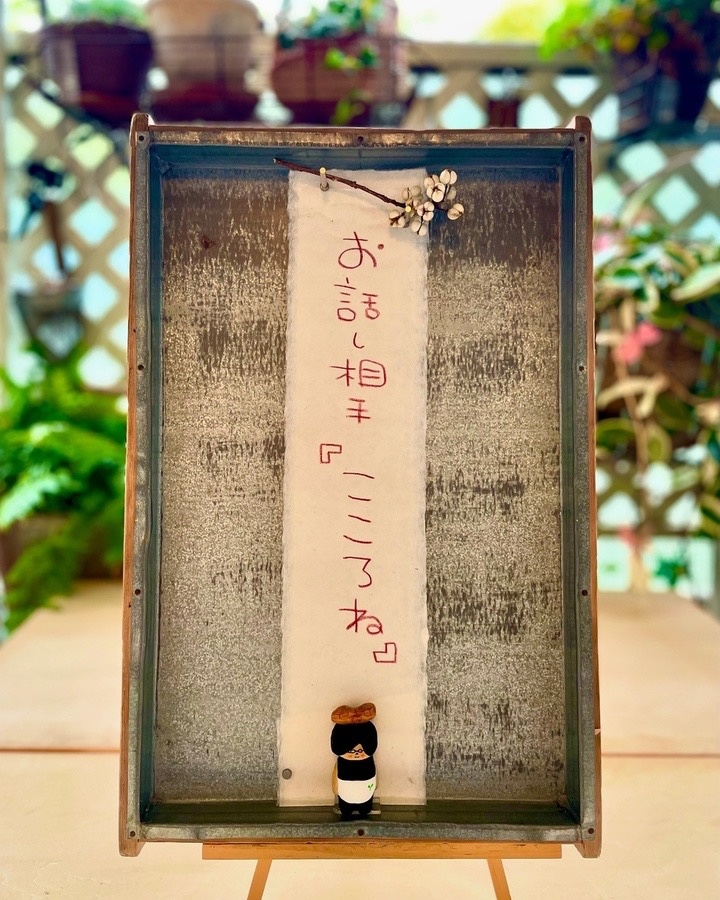 お話し相手『こころね』